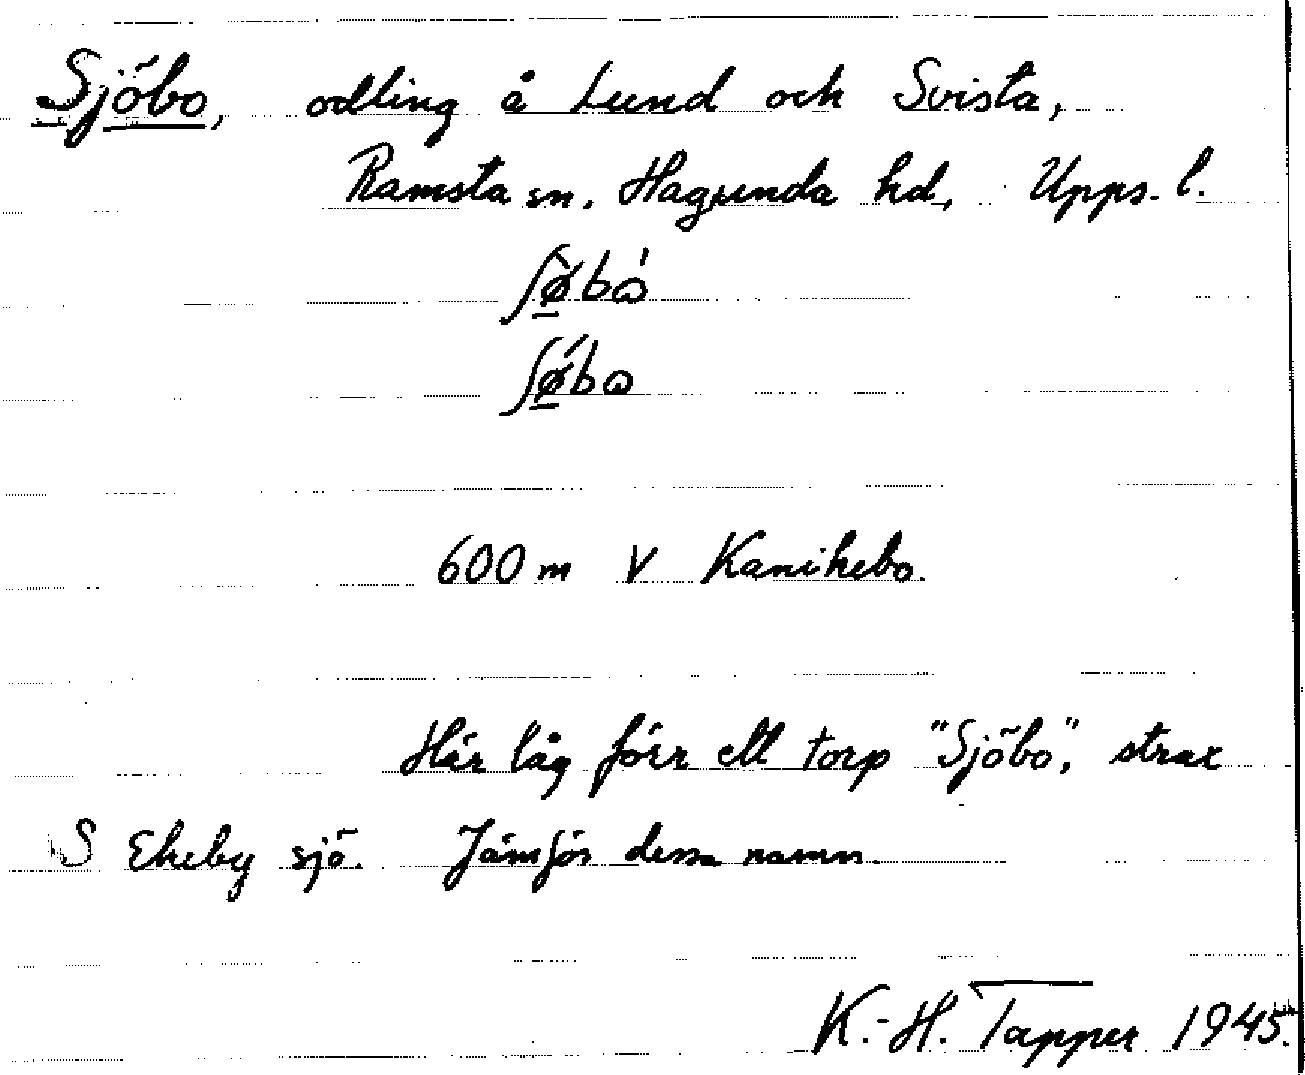 Sjöbo, odling å Lund och Svista,
Ramsta sn. Hagunda hd, Upps. l.
ʃø̠̀bɷ́
ʃǿ̠bɷ
600 m V Kanikebo.
Här låg förr ett torp "Sjöbo", strax
S Ekeby sjö. Jämför dessa namn.
K.-H. Tapper 1945.